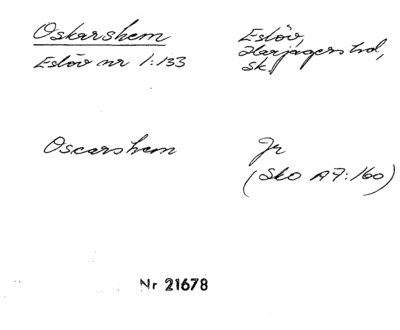 Oskarshem
Eslöv nr 1:133
Eslöv,
Harjagers hd,
Sk.
Oscarshem
Jr
(SkO A7:160)
Nr 21678